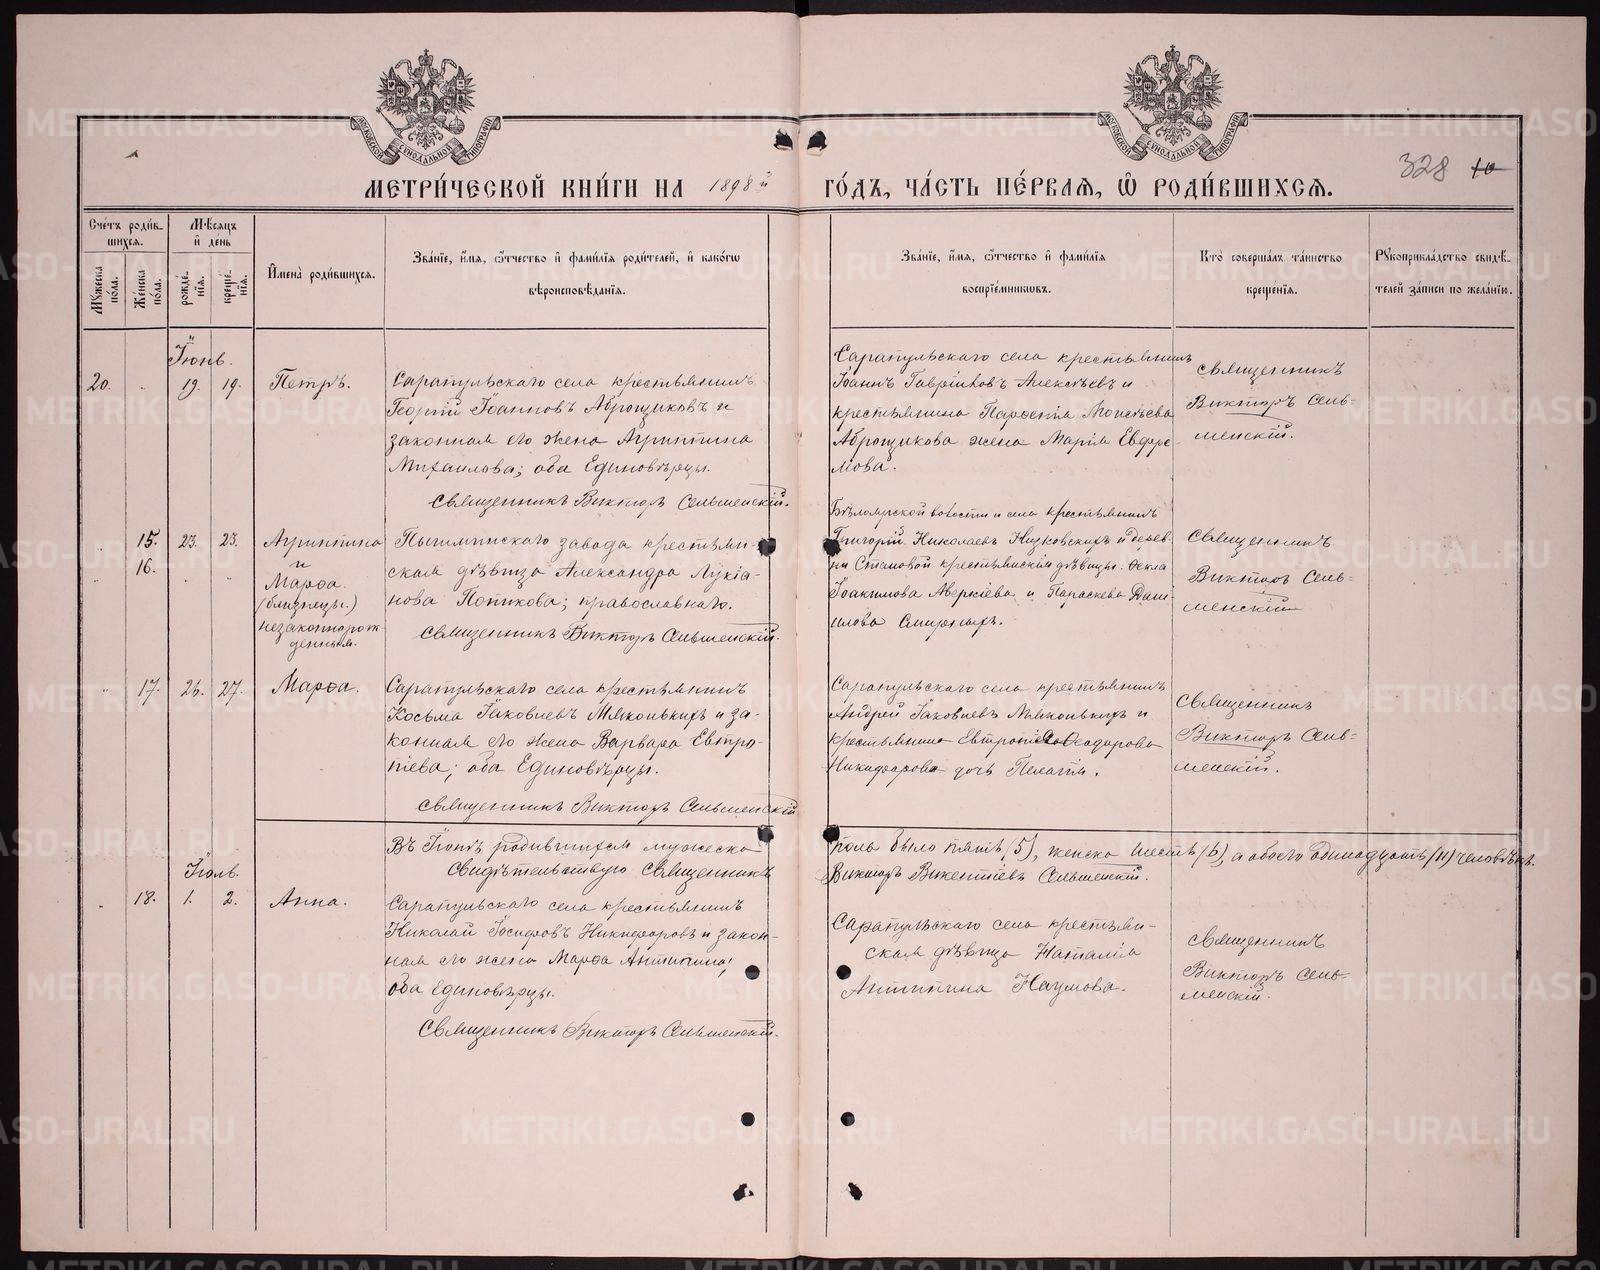 МОСКОВСКОЙ СѴНОДАЛЬНОЙ ТИПОГРАФІИ
МОСКОВСКОЙ СѴНОДАЛЬНОЙ ТИПОГРАФІИ
328 10
МЕТРИ́ЧЕСКОЙ КНИ́ГИ НА 1898й ГО́ДЪ, ЧА́СТЬ ПЕ́РВАЯ, Ѡ РОДИ́ВШИХСЯ.
Сче́тъ роди́в-
шихся.
Мѣ́сяцъ
и҆ день
Мꙋ́жеска
по́ла.
Же́нска
по́ла.
рожде́-
нїя.
креще́-
нїя.
И҆мена̀ роди́вшихся.
Зва́нїе, и҆́мя, ѻ҆́тчество и҆ фами́лїя роди́телей, и҆ како́гѡ
вѣроисповѣ́данїя.
Зва́нїе, и҆́мя, ѻ҆́тчество и҆ фами́лїя
воспрїе́мникѡвъ.
Кто̀ соверша́лъ та́инство
креще́нїя.
Рꙋкоприкла́дство свидѣ́-
телей за́писи по жела́нїю.
Іюнь.
20.
19. 19.
Петръ.
Сарапульскаго села крестьянинъ
Георгій Іоанновъ Аброщиковъ и
законная его жена Агриппина
Михаилова; оба Единовѣрцы.
Священникъ Викторъ Сельменскій.
Сарапульскаго села крестьянинъ
Іоаннъ Гавріиловъ Алексѣевъ и
крестьянина Парѳенія Моисѣева
Аброщикова жена Марія Евфре-
мова.
Священникъ
Викторъ Сель-
менскій.
15.
16.
23. 23.
Агриппина
и
Марѳа
(близнецы.)
незаконнорож-
денныя.
Пышминскаго завода крестьян-
ская дѣвица Александра Лукіа-
нова Потикова; православнаго.
Священникъ Викторъ Сельменскій.
Бѣлоярской волости и села крестьянинъ
Григорій Николаевъ Низковскихъ и дерев-
ни Становой крестьянскія дѣвицы Ѳекла
Іоакимова Аверкіева и Параскева Дані-
илова Смирныхъ.
Священникъ
Викторъ Сель-
менскій
17. 26. 27.
Марѳа.
Сарапульскаго села крестьянинъ
Косьма Іаковлевъ Мяконькихъ и за-
конная его жена Варвара Евтро-
піева; оба Единовѣрцы.
Священникъ Викторъ Сельменскій
Сарапульскаго села крестьянинъ
Андрей Іаковлевъ Мяконькихъ и
крестьянина Евтропія Ѳеодорова
Никифорова дочь Пелагія.
Священникъ
Викторъ Сель-
менскій.
Въ Іюнѣ родившихся мужеска пола было пять (5), женска шесть (6), а обоего одинадцать (11) человѣкъ.
Свидѣтельствую Священникъ Викторъ Викентіевъ Сельменскій.
Іюль
18. 1. 2.
Анна.
Сарапульскаго села крестьянинъ
Николай Іосифовъ Никифоровъ и закон-
ная его жена Марѳа Антипина;
оба единовѣрцы.
Священникъ Викторъ Сельменскій.
Сарапульскаго села крестьян-
ская дѣвица Наталія
Антипина Наумова.
Священникъ
Викторъ Сель-
менскій.
METRIKI.GASO-URAL.RU